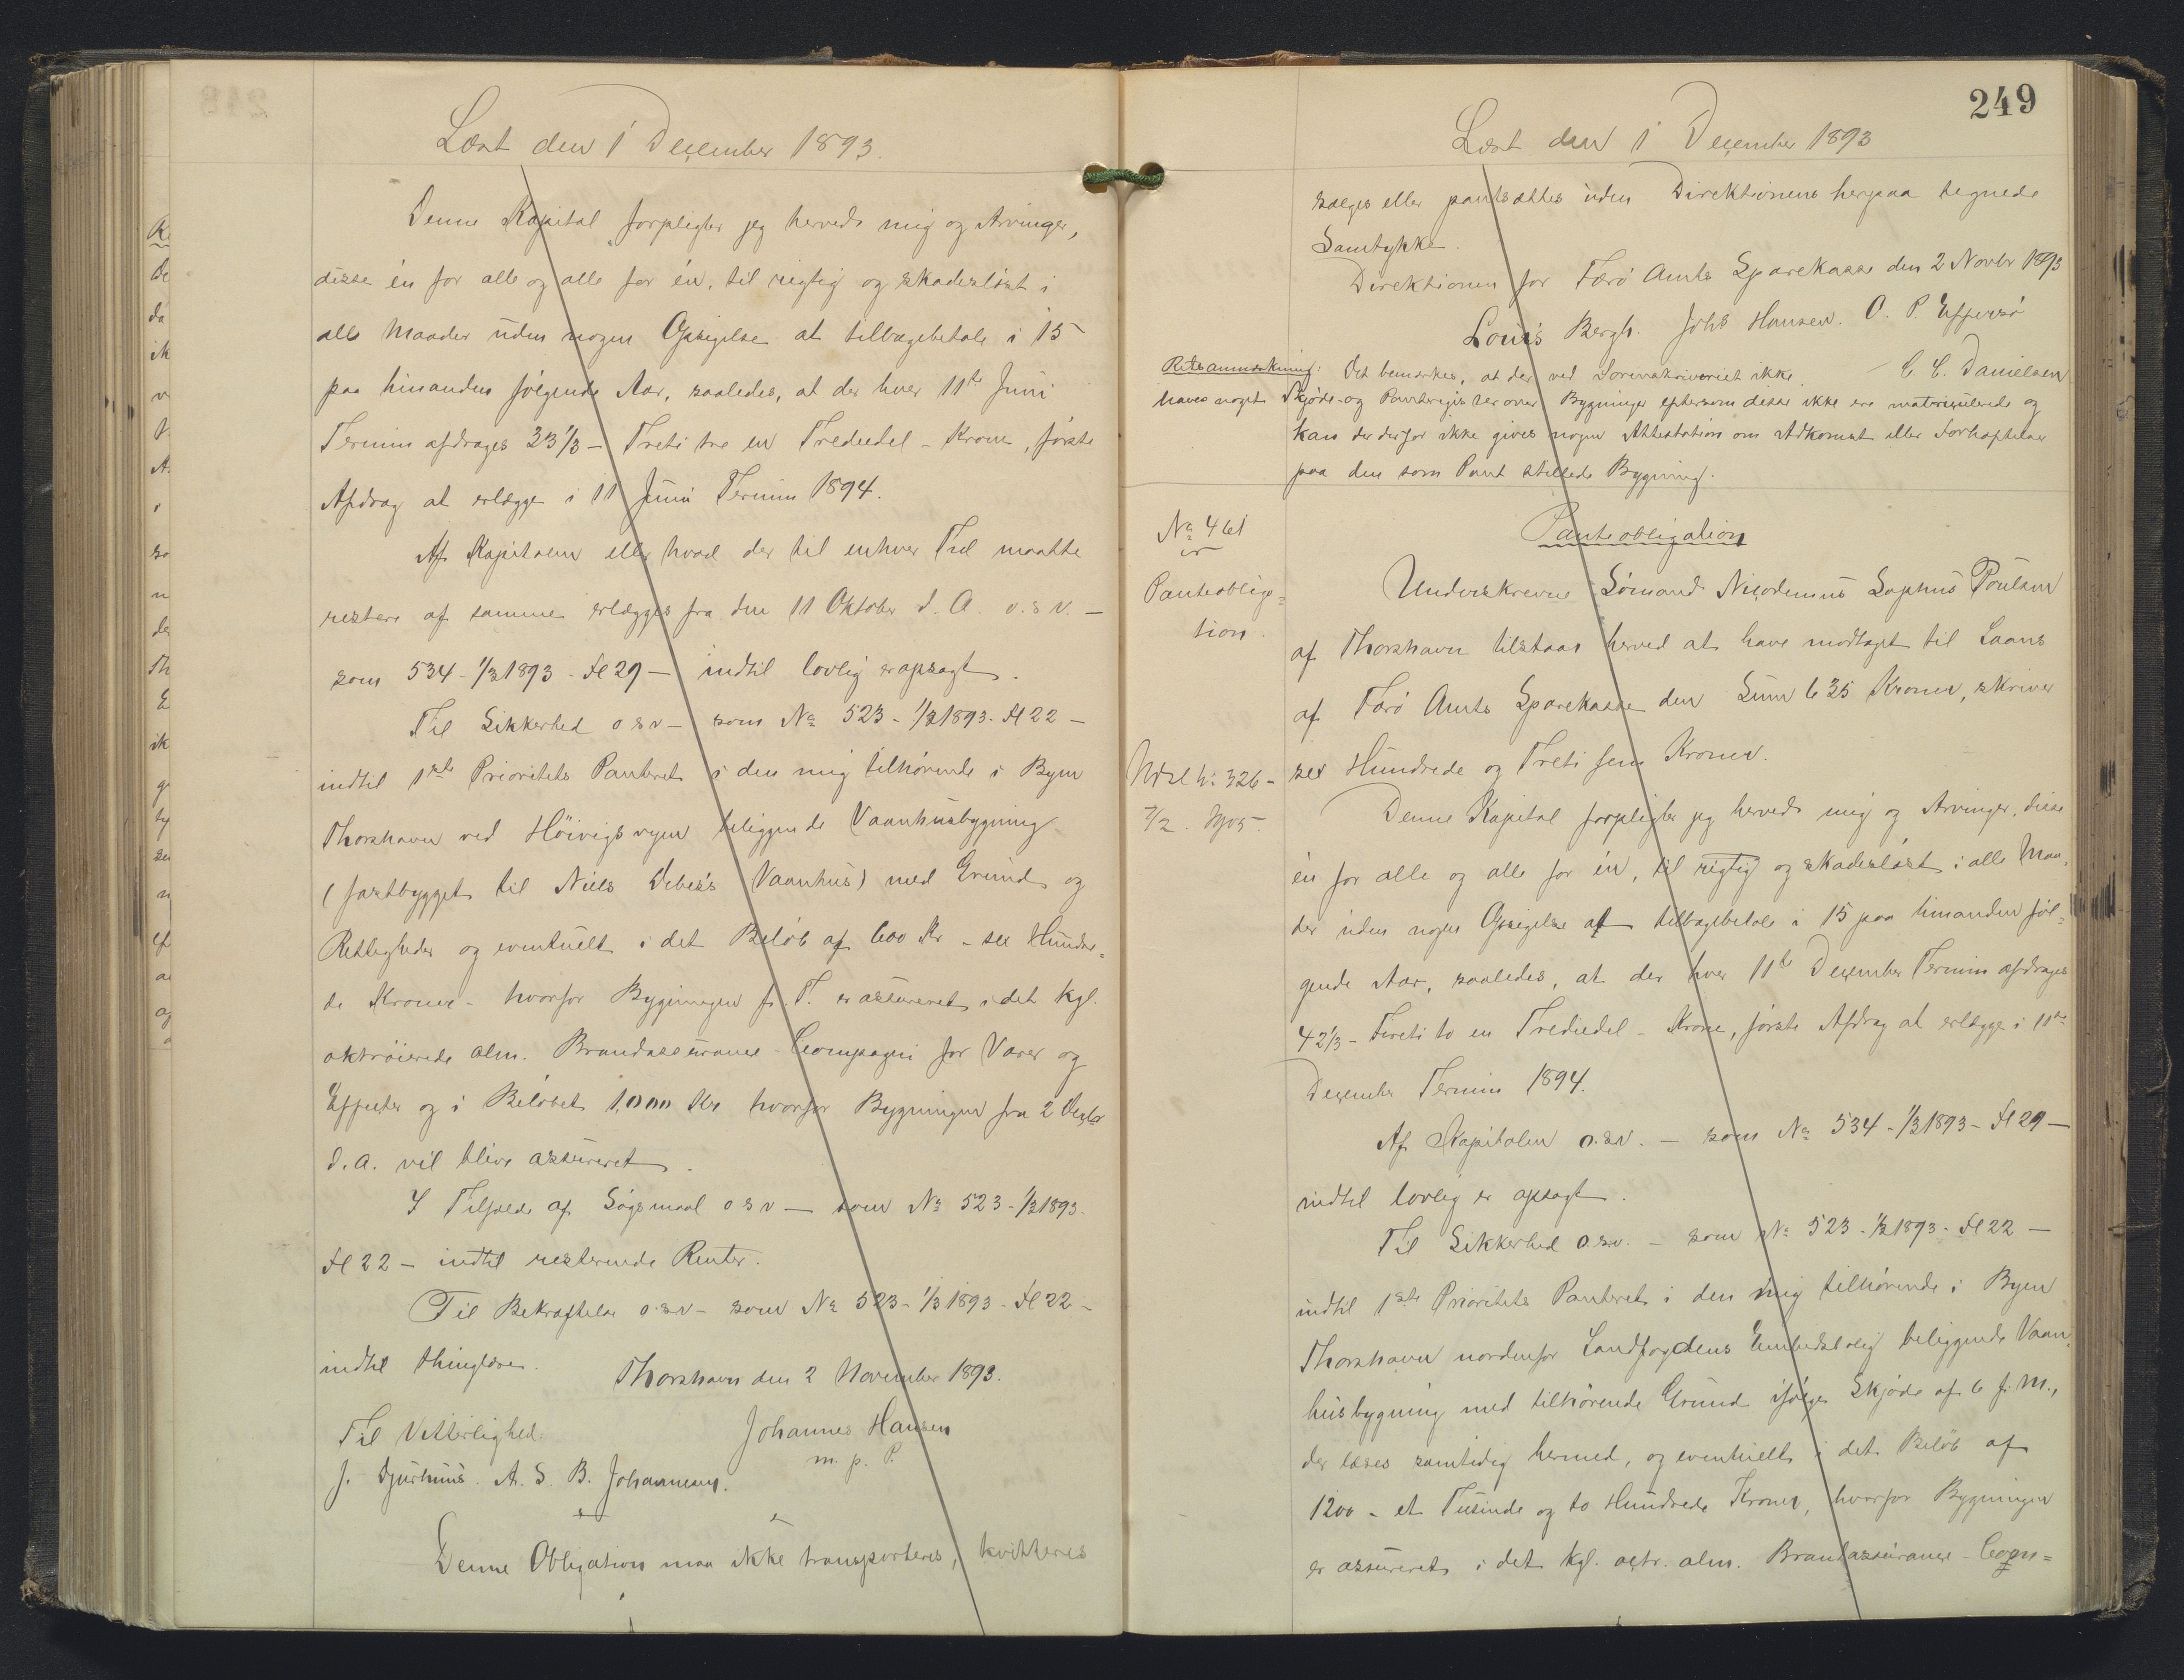 Læst den 1 December 1893.
Denne Kapital forpligter jeg herved mig og Arvinger,
disse én for alle og alle for én, til rigtig og skadesløst i
alle Maader uden nogen Opsigelse at tilbagebetale i 15
paa hinanden følgende Aar, saaledes, at der hver 11te Juni
Termin afdrages 33 1/3 - Treti tre en Trediedel - Krone, første
Afdrag at erlægge i 11 Juni Termin 1894.
Af Kapitalen eller hvad der til enhver Tid maatte
restere af samme erlægges fra den 11 Oktober d. A. o. s v. -
som 534 - 1/12 1893 - Fl 29 - indtil lovlig er opsagt.
Til Sikkerhed o s v - som No 523 - 1/12 1893 - Fl 22 -
indtil 1ste Prioritets Panteret i den mig tilhørende i Byen
Thorshavn ved Höivigsvejen beliggende Vaanhusbygning
(fastbygget til Niels Debes's Vaanhus) med Grund og
Rettigheder og eventuelt i det Beløb af 600 Kr - sex Hundre=
de Kroner - hvorfor Bygningen p. T. er assureret i det kgl.
oktrøierede alm. Brandassurance-Compagni for Varer og
Effecter og i Beløbet 1,000 Kr hvorfor Bygningen fra 2 Decbr
d. A. vil blive assureret.
I Tilfælde af Søgsmaal o s v - som No 523 - 1/12 1893.
Fl 22 - indtil resterende Renter.
Til Bekræftelse o s v - som No 523 - 1/12 1893 - Fl 22 -
indtil thinglæses.
Thorshavn den 2 November 1893.
Til Vitterlighed: Johannes Hansen
J. Djurhuus. A. S. B. Johannesen. m. p. P.
Denne Obligation maa ikke transporteres, kvitteres
249
Læst den 1 December 1893
sælges eller pantsættes uden Direktionens herpaa tegnede
Samtykke.
Direktionen for Færö Amts Sparekasse den 2 Novbr 1893
Louis Bergh. Johs Hansen. O. P. Effersö
C. C. Danielsen
Retsanmærkning: Det bemærkes, at der ved Sorenskriveriet ikke
haves noget Skjøde- og Panteregister over Bygninger eftersom disse ikke ere matriculerede og
kan der derfor ikke gives nogen Attestation om Adkomst eller Forhæftelser
paa den som Pant stillede Bygning.
No 461
Panteobliga=
tion.
Panteobligation
Underskrevne Sømand Nicodemus Sophus Poulsen
af Thorshavn tilstaar herved at have modtaget til Laans
af Færö Amts Sparekasse den Sum 635 Kroner, skriver
sex Hundrede og Treti fem Kroner.
Udsl No 326 -
7/2 1905.
Denne Kapital forpligter jeg herved mig og Arvinger, disse
én for alle og alle for én, til rigtig og skadesløst i alle Maa=
der uden nogen Opsigelse at tilbagebetale i 15 paa hinanden føl=
gende Aar, saaledes, at der hver 11te December Termin afdrages
42 1/3 - Fireti to en Trediedel - Krone, første Afdrag at erlægge i 11te
December Termin 1894.
Af Kapitalen o. s v. - som No 534 - 1/12 1893 - Fl 29 -
indtil lovlig er opsagt.
Til Sikkerhed o. s v. - som No 523 - 1/12 1893 - Fl 22 -
indtil 1ste Prioritets Panteret i den mig tilhørende i Byen
Thorshavn nordenfor Landfogdens Embedsbolig beliggende Vaan=
husbygning med tilhørende Grund ifølge Skjøde af 6 f. M.,
der læses samtidig hermed, og eventuelt i det Beløb af
1200 - et Tusinde og to Hundrede Kroner, hvorfor Bygningen
er assureret i det kgl. octr. alm. Brandassurance-Com=